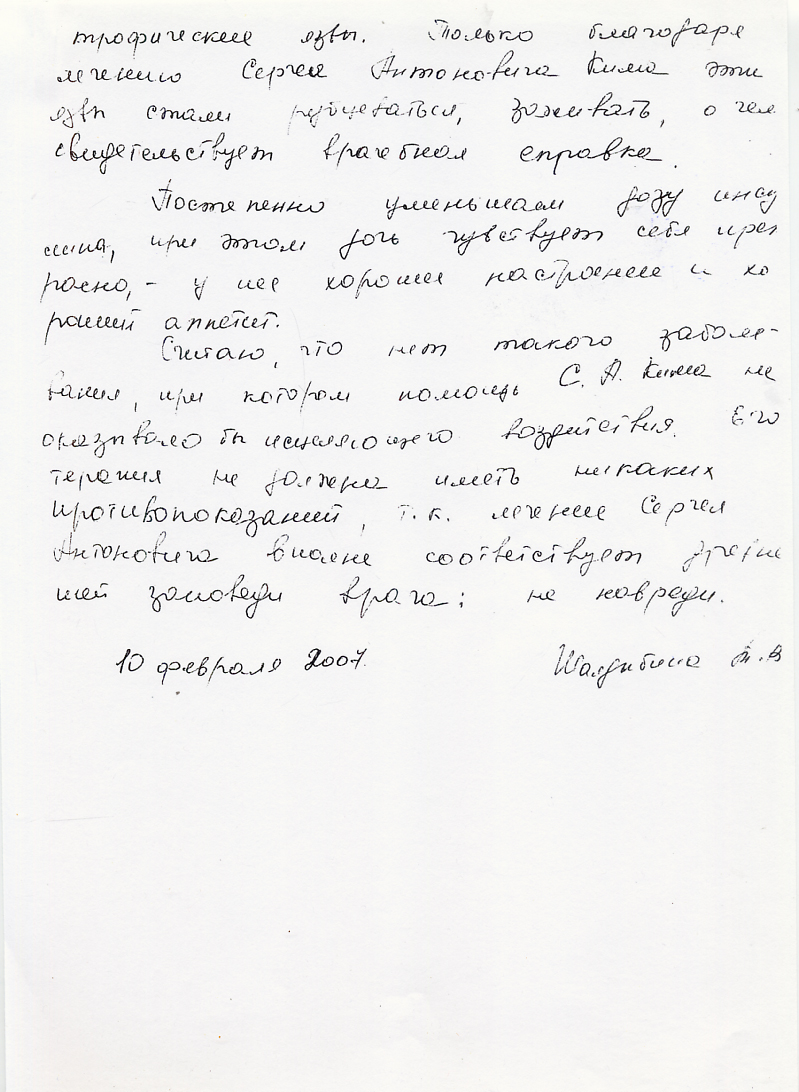 трофические язвы. Только благодаря
лечению Сергея Антоновича Кима эти
язвы стали рубцеваться, заживать, о чем
свидетельствует врачебная справка.
Постепенно уменьшаем дозу инсу
лина, при этом дочь чувствует себя прек
расно, - у нее хорошее настроение и хо
роший аппетит.
Считаю, что нет такого заболе-
вания, при котором помощь С. А. Кима не
оказывало бы исцеляющего воздействия. Его
терапия не должна иметь никаких
противопоказаний, т.к. лечение Сергея
Антоновича вполне соответствует древне
шей заповеди врача: не навреди.
10 февраля 2007. Шалдыбина Т.В